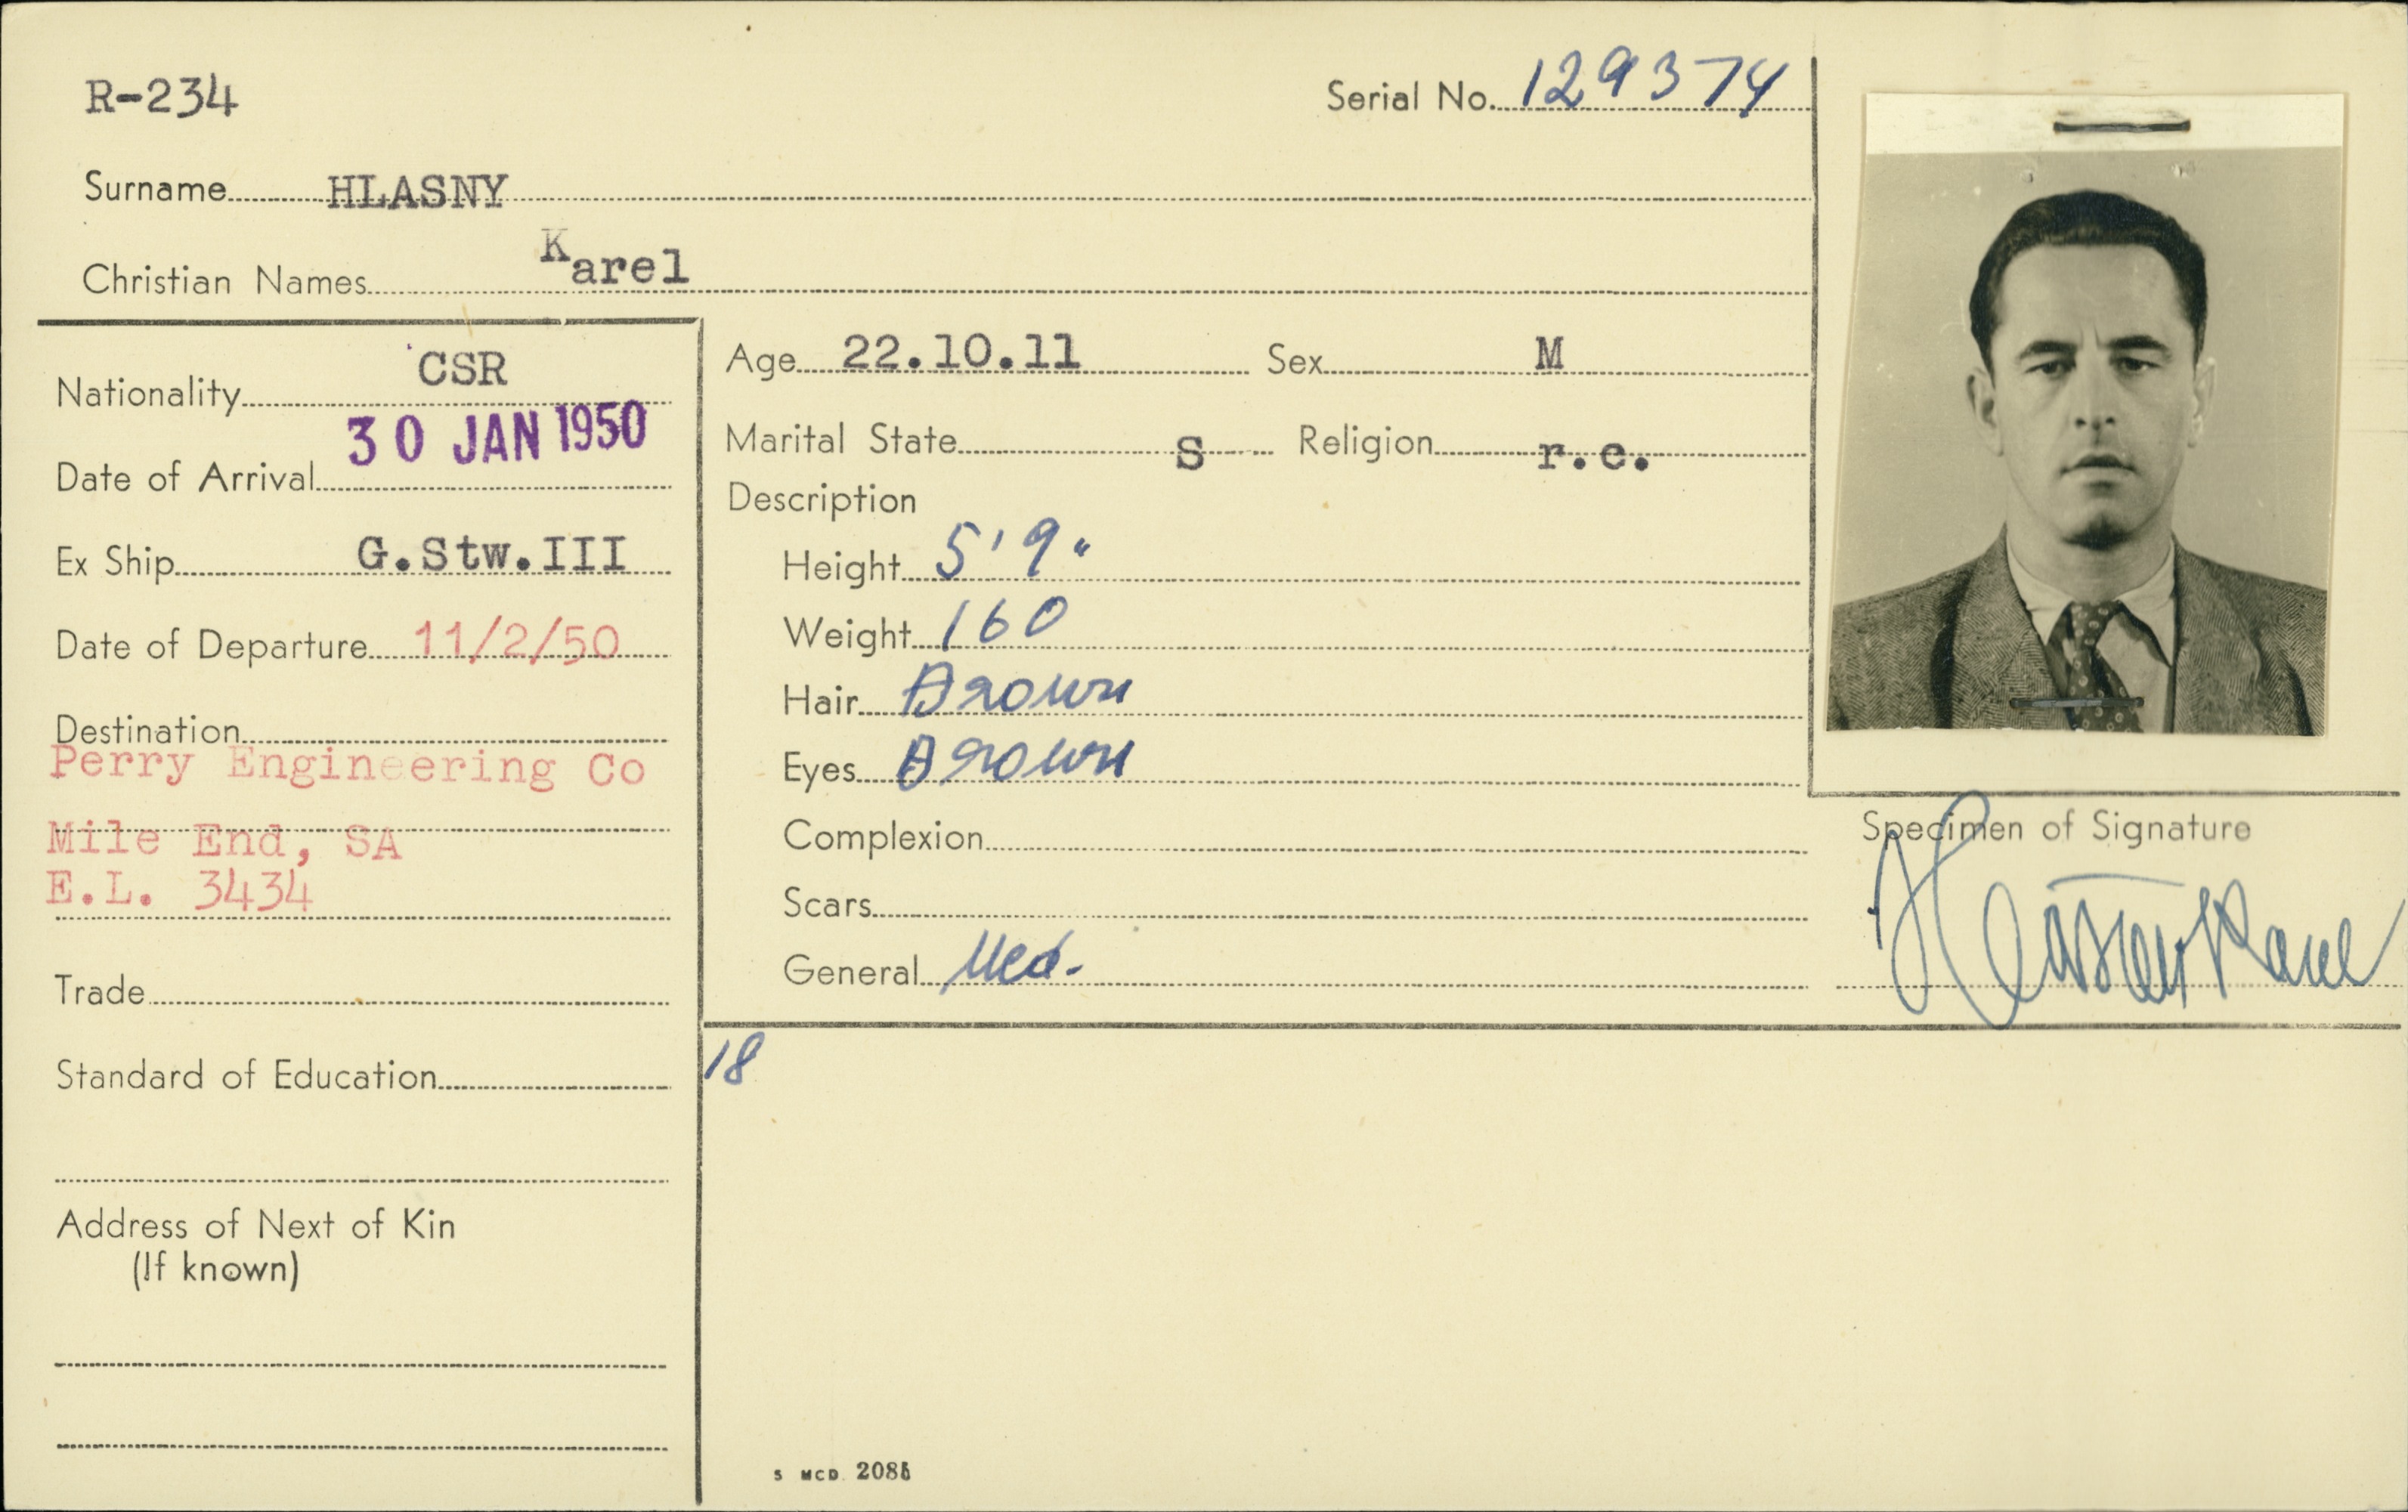 R-234
Serial No. 129374
Surname HLASNY
Christian Names Karel
Nationality CSR
Date of Arrival 30 JAN 1950
Ex Ship G.Stw.III
Date of Departure 11/2/50
Destination
Perry Engineering Co
Mile End, SA
E.L. 3434
Trade
Standard of Education
Address of Next of Kin
(If known)
Age 22.10.11 Sex M
Marital State S Religion r.c.
Description
Height 5'9"
Weight 160
Hair Brown
Eyes Brown
Complexion
Scars
General Med.
18
Specimen of Signature
S MCD 2085